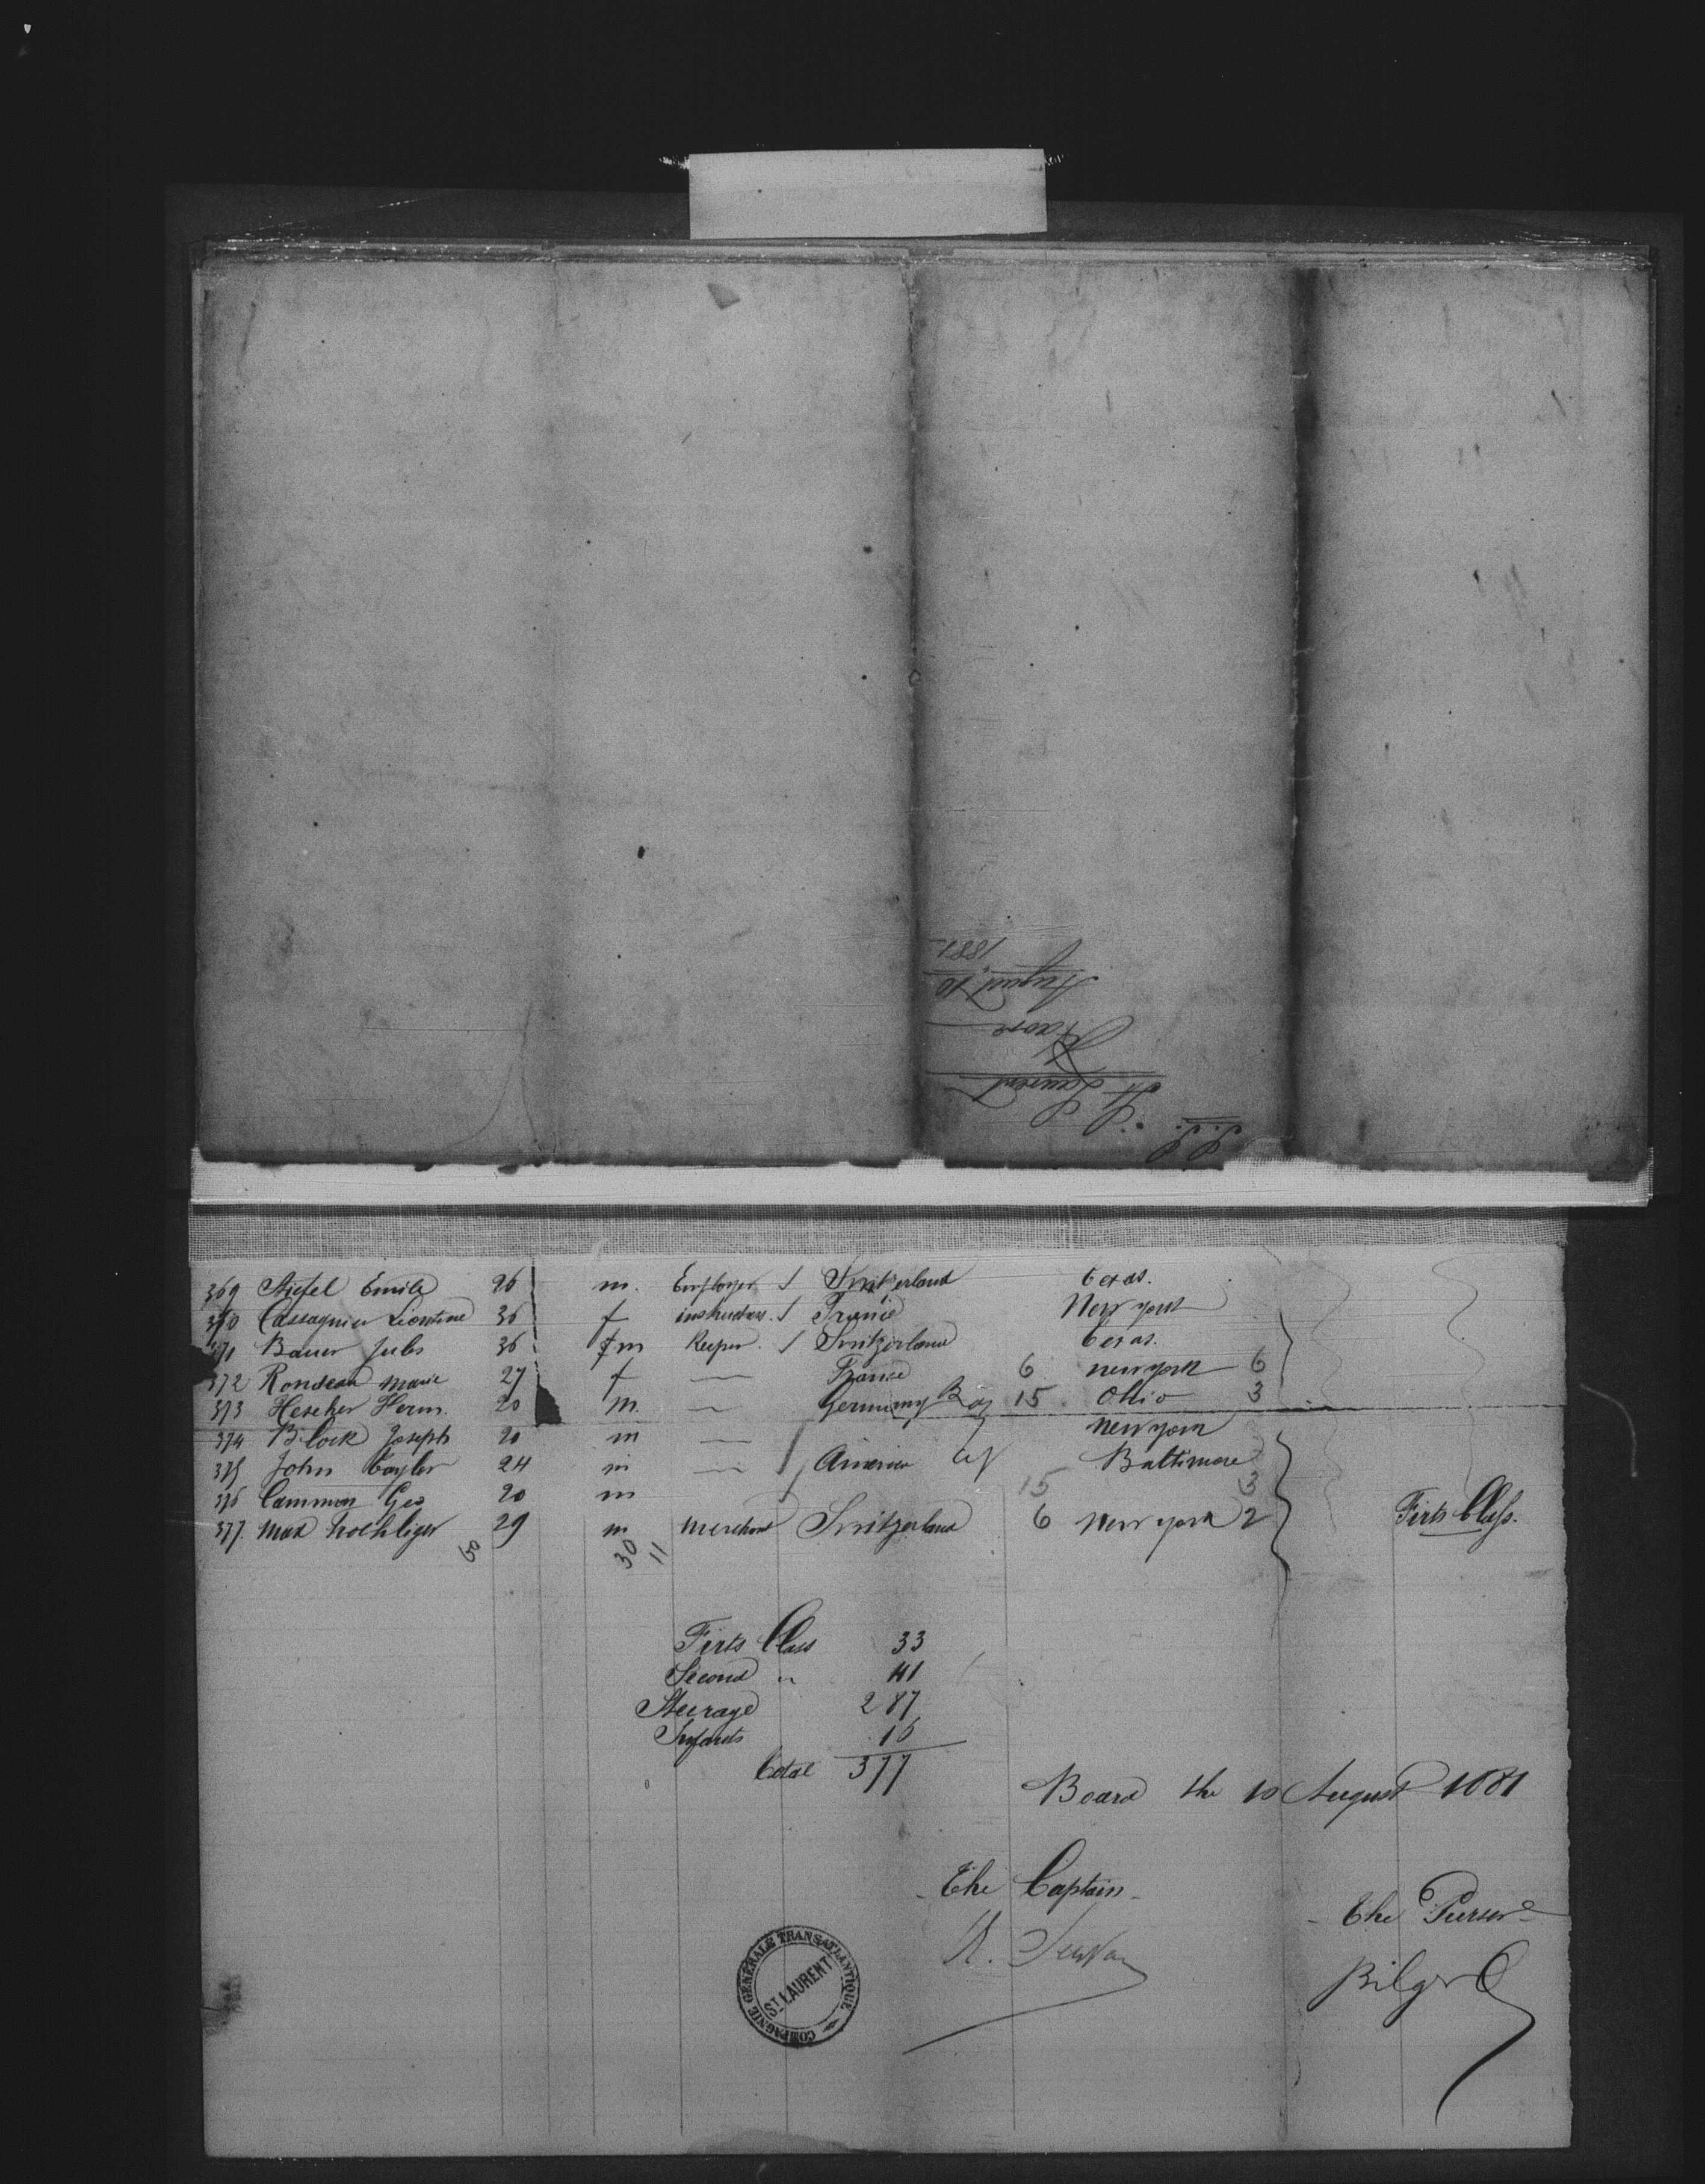 S.S. St Laurent
Havre
August 10
1881
369 Stiefel Emile 26 m. Employer / Switzerland texas.
370 Cassagnier Leontine 36 f instructor / France New york
371 Bauer Jules 36 fm Keeper / Switzerland texas.
372 Rondeau Marie 27 f — France 6 new york 6
373 Hescher Herm. 20 m — Germany 15 Ohio 3
374 Block Joseph 20 m — new york
375 John Taylor 24 m — America Baltimore
376 Cammon Geo 20 m 15 3
377. Max 29 m merchant Switzerland 6 New york 2 Firts Class.
50 30 11
Firts Class 33
Second " 41
Steerage 287
Infants 16
total 377
Board the 10 August 1881
The Captain
The Purser
COMPAGNIE GENERALE TRANSATLANTIQUE
ST LAURENT